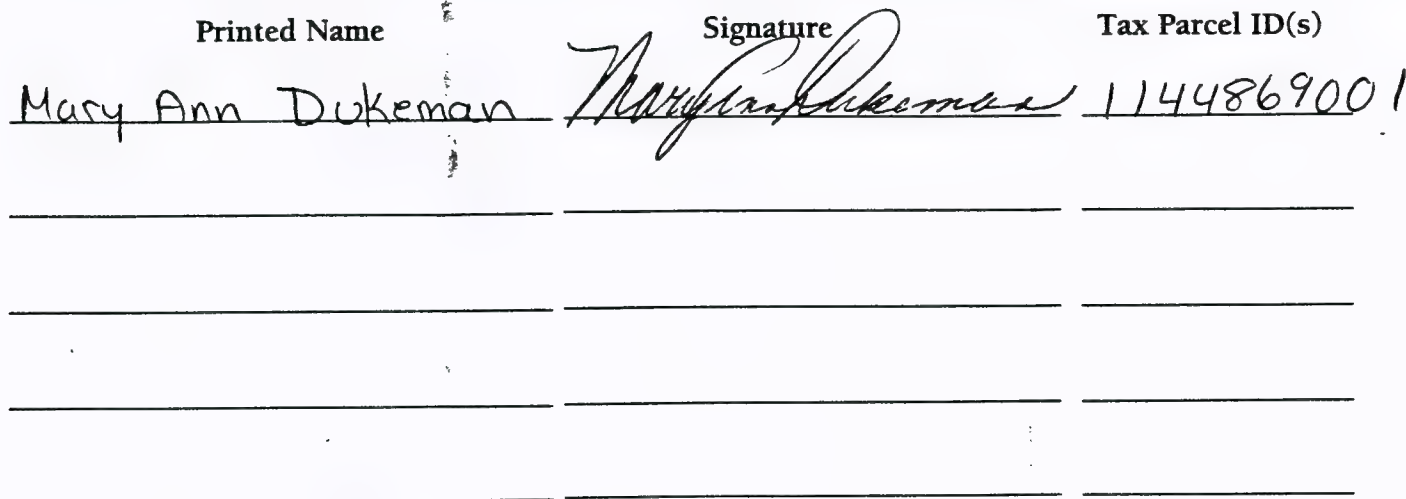 Printed Name Signature Tax Parcel ID(s)
Mary Ann Dukeman Mary Ann Dukeman 1144869001